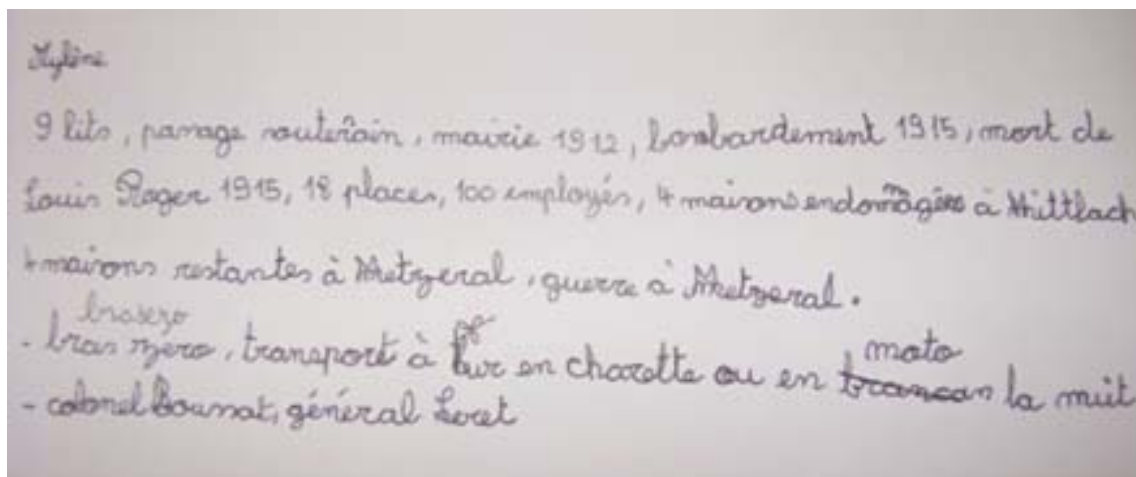 Mylène
9 lits, passage souterrain, mairie 1912, bombardement 1915, mort de
Louis Roger 1915, 18 places, 100 employés, 4 maisons endommagées à Mittlach
4 maisons restantes à Metzeral, guerre à Metzeral.
brasezo
- bras zero, transport à en charette ou en moto la nuit
- colonel Boussat, général Serret